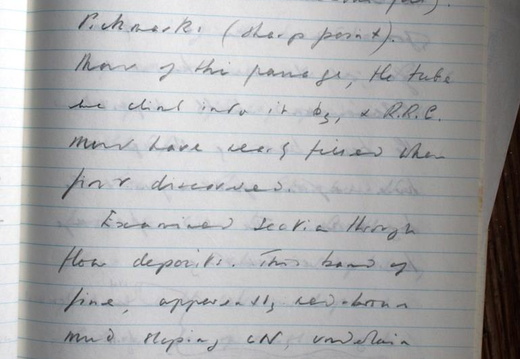 Pickmarks (sharp point).
Most of this passage, the tube
we climb into it by, & R.R.C.
must have nearly filled when
first discovered.
Examined section through
flow deposits. This band of
fine, apparently red-brown
mud sloping cN, underlain